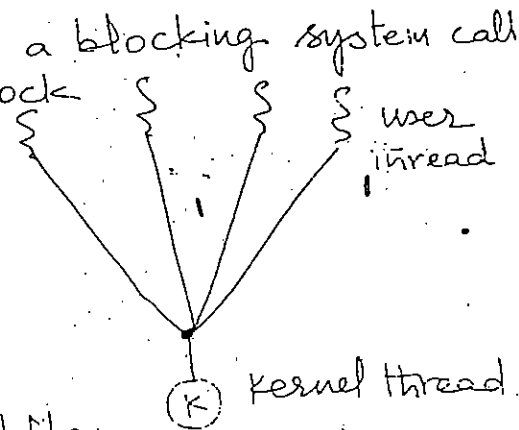 a blocking system call
ock
user
thread
K
kernel thread.